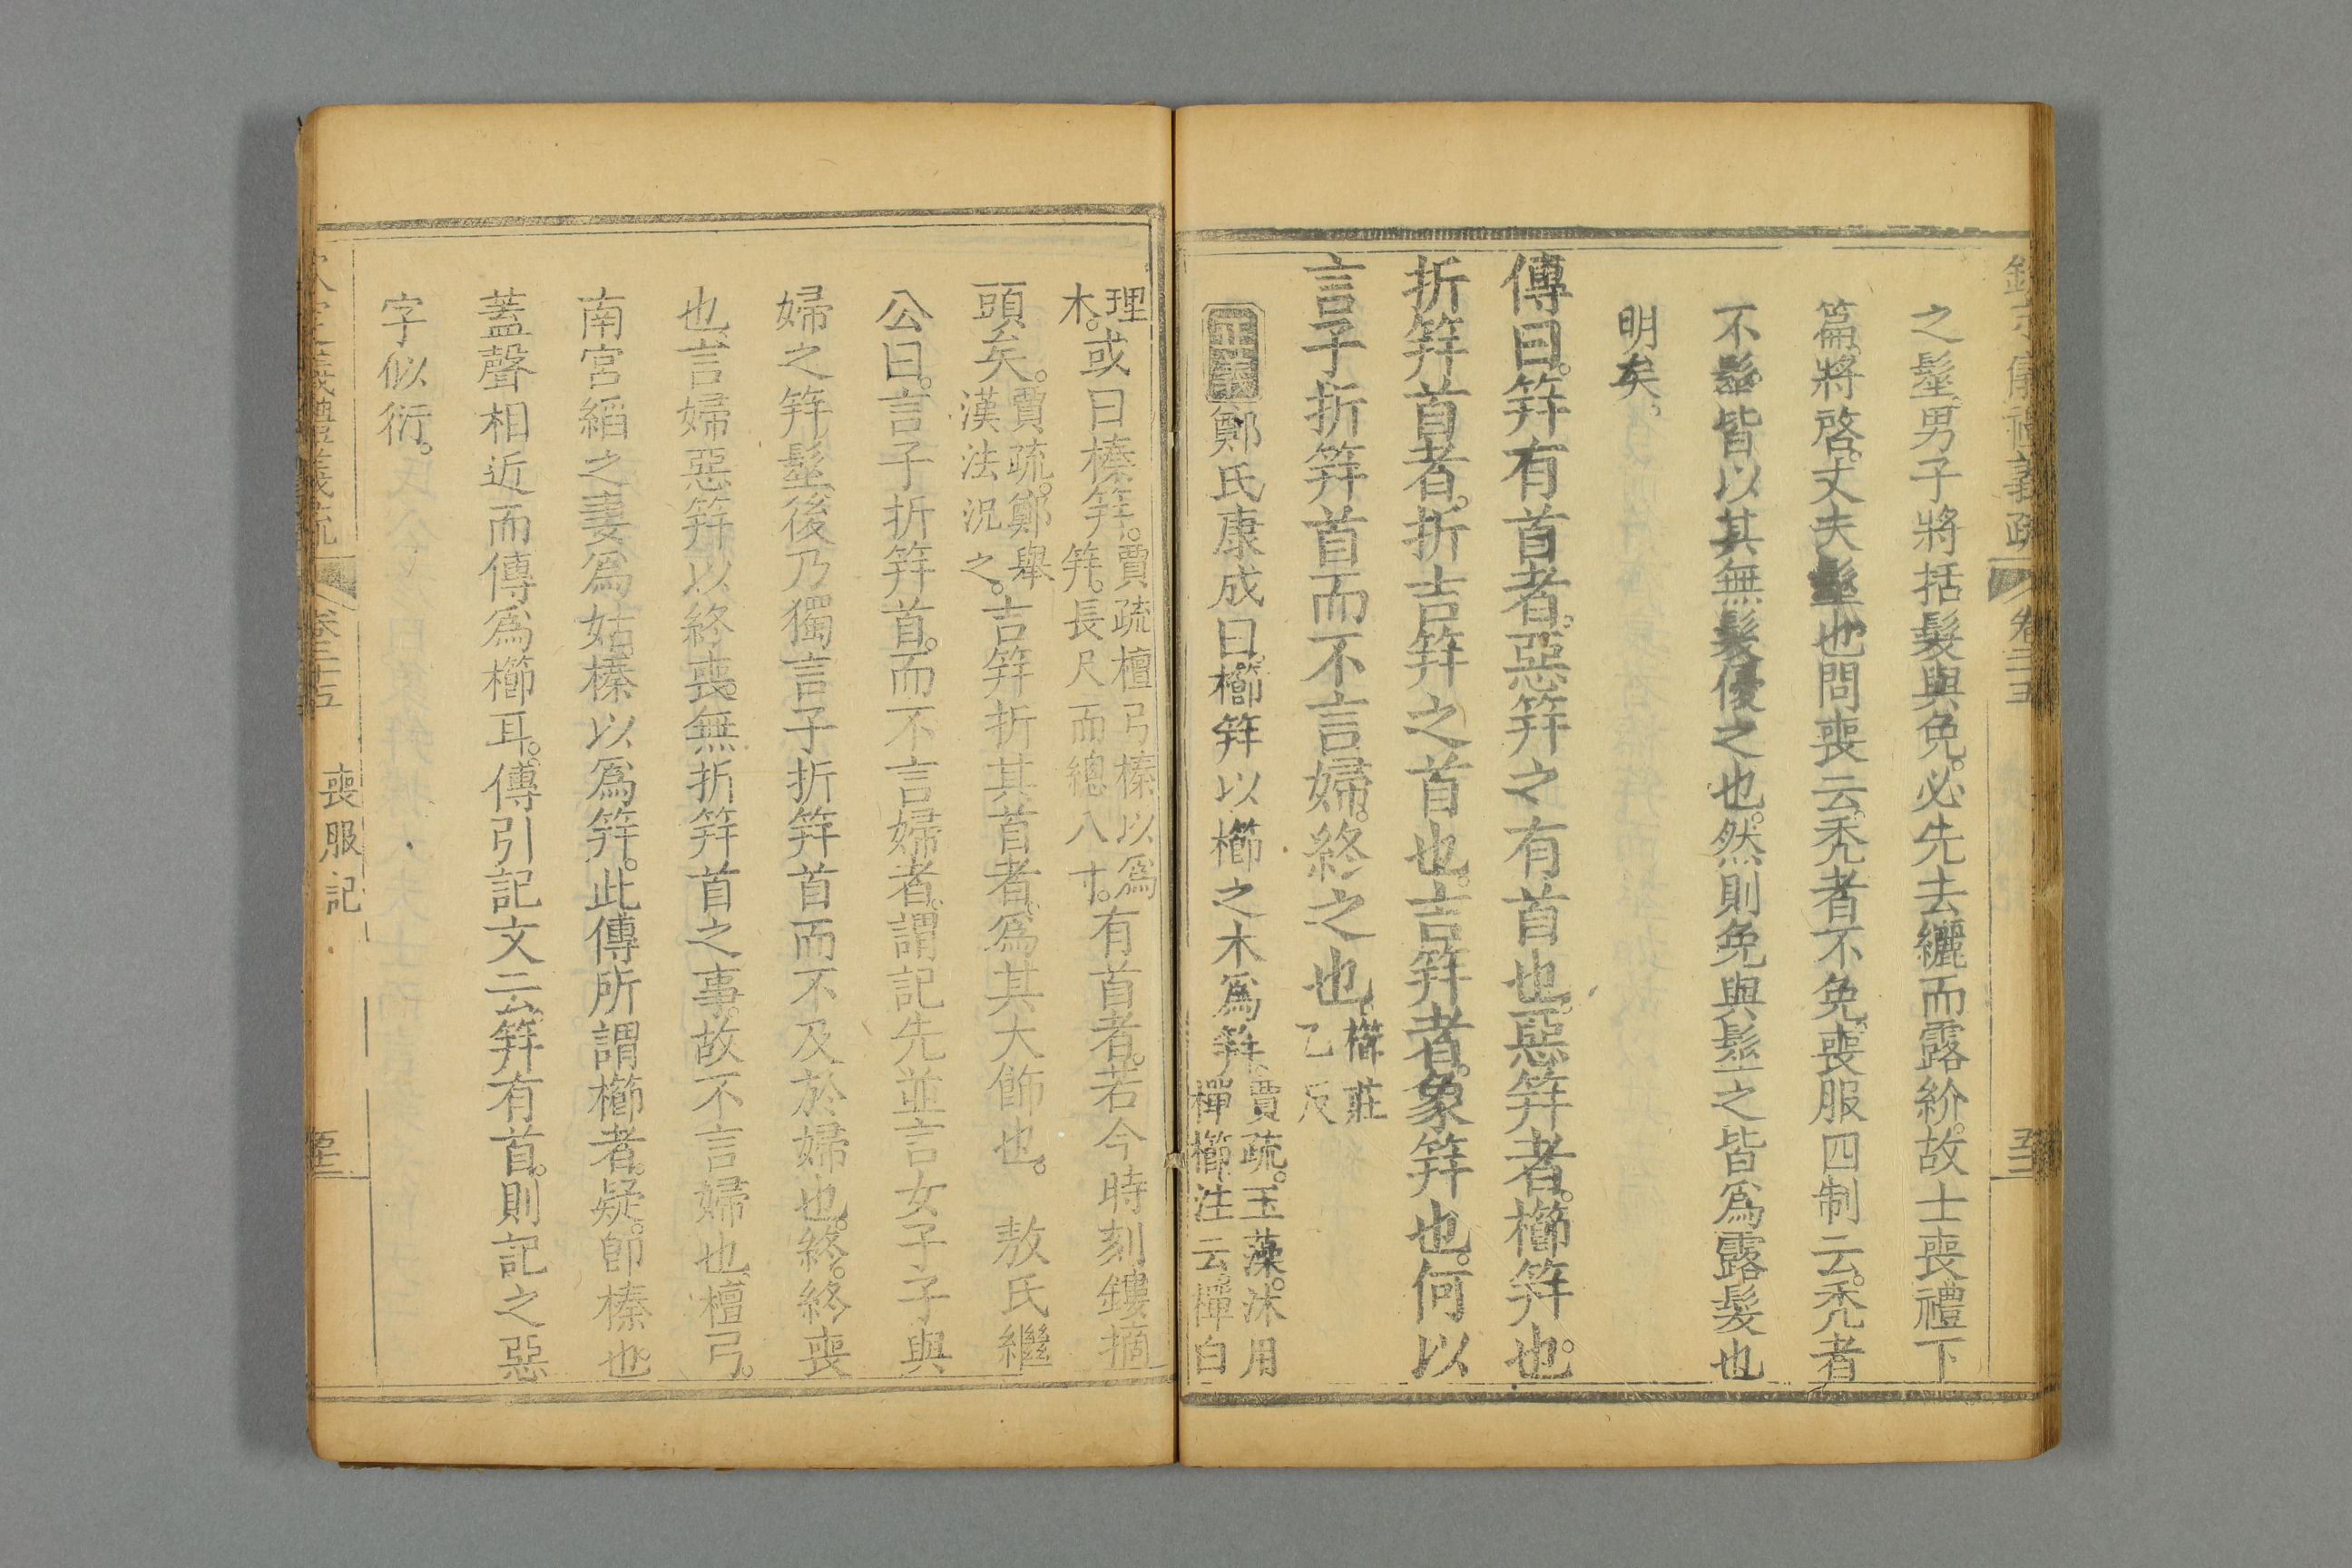 之髽男子將括髮與免。必先去纚而露紒。故士喪禮下
篇。將啓。丈夫髽也。問喪云。禿者不免。喪服四制云。禿者
不髽。皆以其無髮優之也。然則免與髽之皆爲露髮也
明矣。
傳曰。笄有首者。惡笄之有首也。惡笄者。櫛笄也。
折笄首者。折吉笄之首也。吉笄者。象笄也。何以
言子折笄首而不言婦。終之也。櫛莊乙反
正義 鄭氏康成曰。櫛笄以櫛之木爲笄。賈疏。玉藻。沐用樿櫛。注云。樿白
理木。或曰榛笄。賈疏檀弓榛以爲笄。長尺而總八寸。有首者。若今時刻鏤摘
頭矣。賈疏。鄭舉漢法況之。吉笄折其首者。爲其大飾也。 敖氏繼
公曰。言子折笄首。而不言婦者。謂記先並言女子子與
婦之笄髽。後乃獨言子折笄首而不及於婦也。終。終喪
也。言婦惡笄以終喪。無折笄首之事。故不言婦也。檀弓。
南宮縚之妻爲姑。榛以爲笄。此傳所謂櫛者。疑卽榛也。
蓋聲相近而傳爲櫛耳。傳引記文云。笄有首。則記之惡
字似衍。
欽定儀禮義疏 卷二十五 喪服記